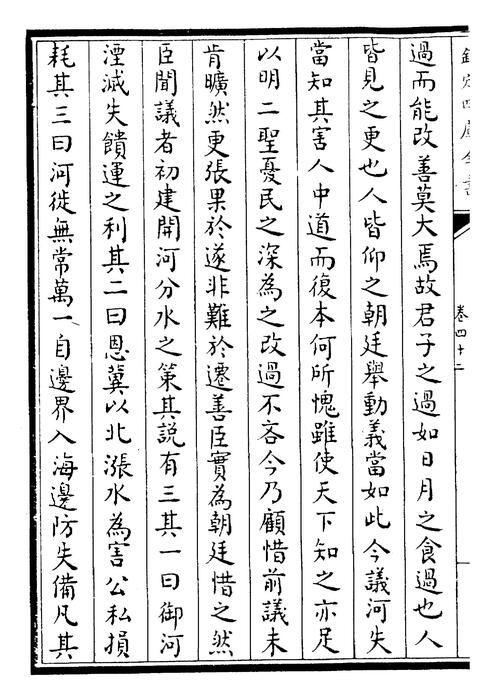 欽定四庫全書
卷四十二
過而能改善莫大焉故君子之過如日月之食過也人
皆見之更也人皆仰之朝廷舉動義當如此今議河失
當知其害人中道而復本何所愧雖使天下知之亦足
以明二聖憂民之深為之改過不吝今乃顧惜前議未
肯曠然更張果於遂非難於遷善臣實為朝廷惜之然
臣聞議者初建開河分水之策其説有三其一曰御河
湮滅失饋運之利其二曰恩冀以北漲水為害公私損
耗其三曰河徙無常萬一自邊界入海邊防失備凡其